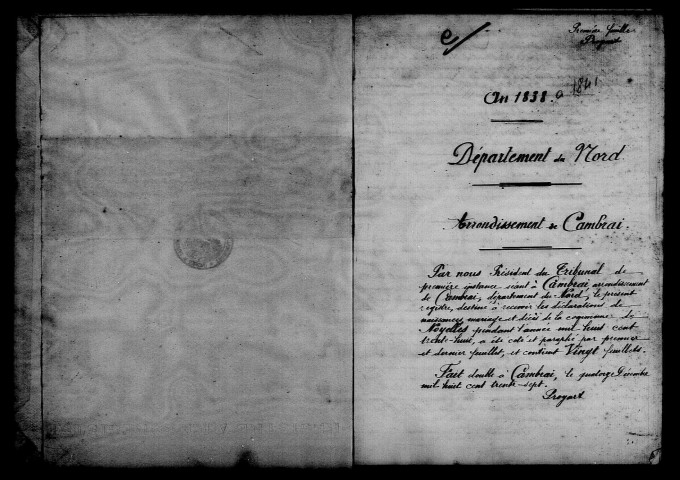 Première feuille
Proyart
An 1838 a 1841
Département du Nord
Arrondissement de Cambrai.
Par nous Président du Tribunal de
première instance séant à Cambrai arrondissement
de Cambrai, département du Nord, le présent
registre, destiné à recevoir les déclarations de
naissances, mariage et décès de la commune de
Noyelles pendant l'année mil huit cent
trente-huit, a été coté et paraphé par premier
et dernier feuillet, et contient Vingt feuillets.
Fait double à Cambrai, le quatorze Décembre
mil huit cent trente-sept.
Proyart